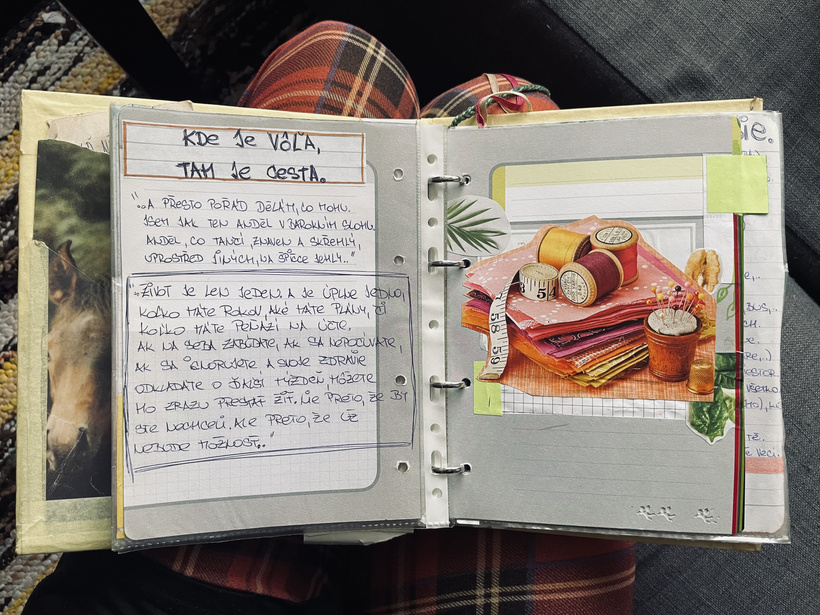 KDE JE VÔĽA,
TAM JE CESTA.
"..A PŘESTO POŘÁD DĚLÁM, CO MOHU.
JSEM JAK TEN ANDĚL V BAROKNÍM SLOHU.
ANDĚL, CO TANČÍ ZNAVEN A SKŘEHLÝ,
UPROSTŘED JINÝCH, NA ŠPICE JEHLY.."
"ŽIVOT JE LEN JEDEN. A JE ÚPLNE JEDNO,
KOĽKO MÁTE ROKOV, AKÉ MÁTE PLÁNY, ČI
KOĽKO MÁTE PEŇAZÍ NA ÚČTE.
AK NA SEBA ZABÚDATE, AK SA NEPOČÚVATE,
AK SA IGNORUJETE A SVOJE ZDRAVIE
ODKLADÁTE O ĎALŠÍ TÝŽDEŇ MÔŽETE
HO ZRAZU PRESTAŤ ŽIŤ. NIE PRETO, ŽE BY
STE NECHCELI. ALE PRETO, ŽE UŽ
NEBUDE MOŽNOSŤ.."
3 5
58 59
IE.
VŠETKO
VECI.